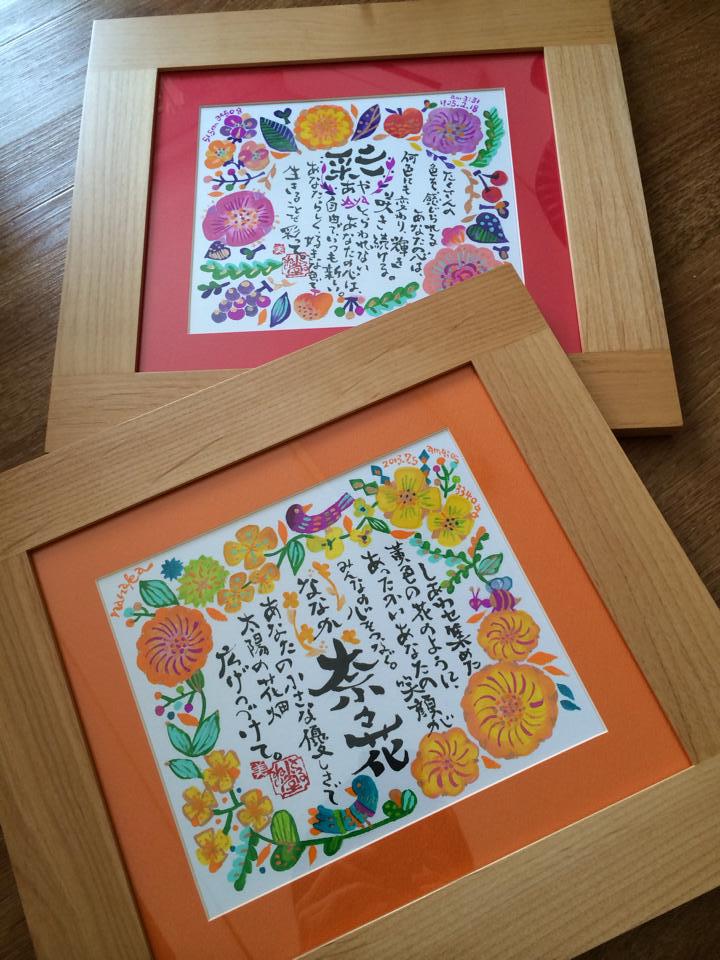 51cm 3150g
am 3:31
H25.2.18
たくさんの
色を感じられる
あなたの心は、
何色にも変わり、輝き。
咲き続ける。
彩
あや
aya
とらわれない
あなたの心は、
自由でいつも新しい。
あなたらしく好きな色で
生きることで彩って。
美
nanaka
2013.7.5
しあわせ集めた
黄色の花のように、
あったかいあなたの笑顔が
みんなの心をつなぐ。
奈々花
ななか
あなたの小さな優しさで
太陽の花畑
広げつづけて。
美